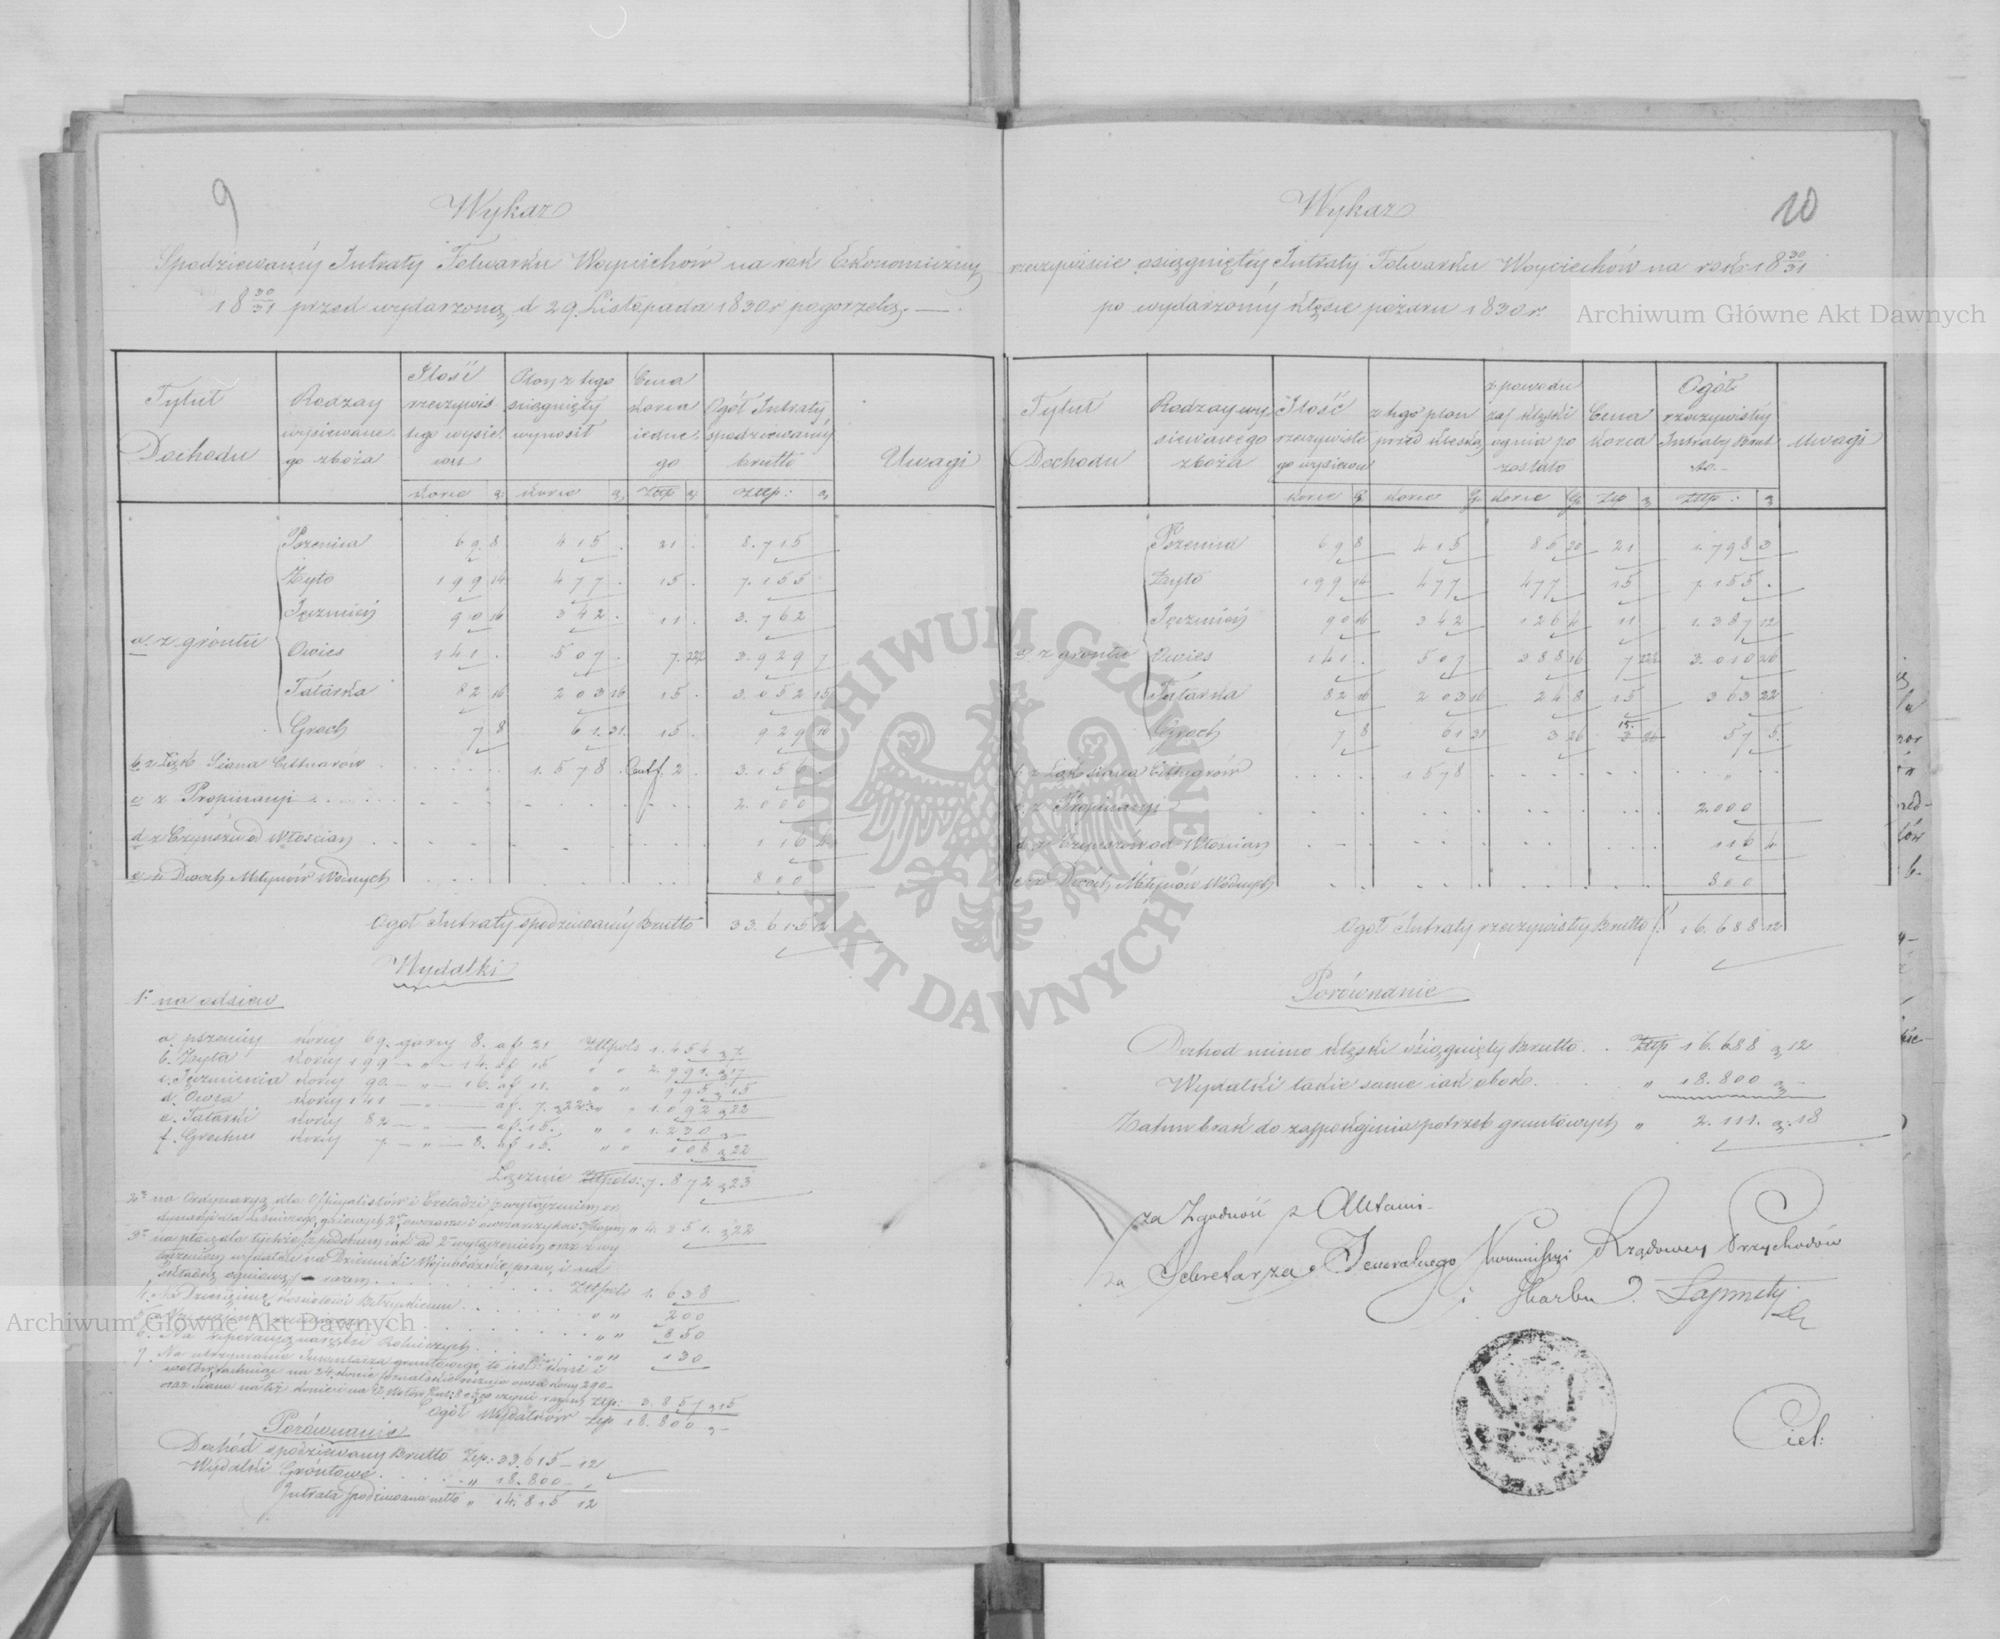 9
Wykaz
Spodziewanéy Intraty Folwarku Woyciechów na rok Ekonomiczny
18 30/31 przed wydarzoną d 29. Listopada 1830 r pogorzelą. —
Tytuł Dochodu
Rodzay wysiewanego zboża
Ilość rzeczywistego wysiewu
Plon z tego osiągnięty wynosił
Cena korca iednego
Ogół Intraty spodziewanéy brutto
Uwagi
Korce g. Korce g. Złtp g. Złtp: g.
a. z gróntu
Pszenica 69 8 415 . 21 . 8.715
Żyto 199 14 477 . 15 . 7.155
Jęczmień 90 16 342 . 11 . 3.762
Owies 141 . 507 . 7. 22½ 3.929 7
Tatarka 82 16 203 16 15 . 3.052 15
Groch 7 8 61 31 15 . 929 16
b z Łąk Siana Cetnarów 1.578 . Centf. 2 . 3.156 .
c z Propinacyi 2.000
d z Czynszów od Włościan 116 4
e z Dwóch Młynów Wodnych 800
Ogół Intraty spodziewanéy Brutto 33.615 12
Wydatki
1º na odsiew
a. pszenicy korcy 69. garcy 8. af 21 Złtpols 1.454 g 7
b. Żyta korcy 199 — " — 14. af 15 " " 2.991. g 17
c. Jęczmienia korcy 90. — " — 16. af 11. " " 995 g 15
d. Owsa korcy 141 — " — af. 7. g 22½ " " 1.092 g 22
e. Tatarki korcy 82 — " — af. 15. " " 1.230 g —
f. Grochu korcy 7. — " — 8. af 15. " " 108 g 22
Łącznie Złtpols: 7.872 g 23
2º na Ordynaryą dla Officyalistów i Czeladzi z wyłączeniem
" 4.251. g 22
Złtpols 1.638
4. Na Dziesięcinę Kościołowi " " 200
" " 850
6. Na reperacyą narzędzi Rolniczych " " 130
7. Na utrzymanie Inwentarza gruntowego to iest: koni i
Złp: 3.857 g 15
Ogół Wydatków Złp 18.800 g —
Porównanie
Dochód spodziewany Brutto Złp: 33.615 — 12
Wydatki Gróntowe " 18.800 —
Intrata spodziewana netto " 14.815 12
10
Wykaz
rzeczywiście osiągniętéy Intraty Folwarku Woyciechów na rok 18 30/31
po wydarzonéy klęsce pożaru 1830 r.
Tytuł Dochodu
Rodzay wysiewanego zboża
Ilość rzeczywistego wysiewu
z tego plon przed klęską
z powodu zaś klęski ognia pozostało
Cena korca
Ogół rzeczywistéy Intraty Brutto.
Uwagi
Korce g Korce g. Korce g. Złp g Złtp: g
a z gróntu
Pszenica 69 8 415 85 20 21 1.798 3
Żyto 199 14 477 477 15 7.155 .
Jęczmień 90 16 342 126 4 11 1.387 12
Owies 141 . 507 388 16 7 22½ 3.010 26
Tatarka 82 16 203 16 24 8 15 363 22
Groch 7 8 61 31 3 26 15. 57 5.
b. z Łąk siana Cetnarów 1578 "
c. z Propinacyi 2.000
d. z Czynszów od Włościan 116 4
e. z Dwóch Młynów Wodnych 800
Ogół Intraty rzeczywistéy Brutto 16.688 12
Porównanie
Dochód mimo klęski osiągnięty Brutto. . Złtp 16.688 g 12
Wydatki takie same iak obok. " 18.800 g —
Zatem brak do zaspokoienia potrzeb gruntowych " 2.111. g. 18
za Zgodność z Aktami
za Sekretarza Jeneralnego Kommissyi Rządowey Przychodów
i Skarbu
Ciel:
Archiwum Główne Akt Dawnych
Archiwum Główne Akt Dawnych
ARCHIWUM GŁÓWNE AKT DAWNYCH